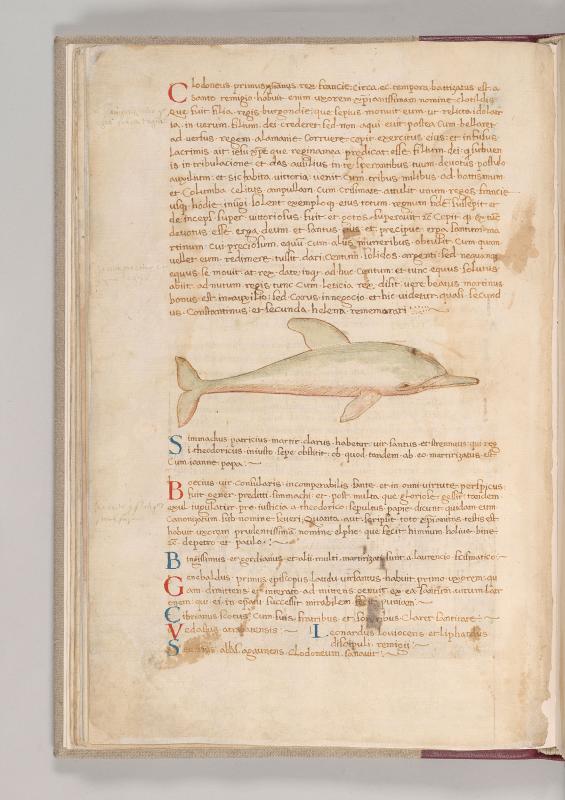 Clodoneus primus rex francie circa ec tempora battizatus est a
Santo remigio habuit enim uxorem xpianissimam nomine clotildis
que fuit filia regis burgondie que sepius monuit eum ut relicta idolat
ia in verum filium dei crederet sed non aqui evit postea Cum bellaret
ad versus regem alamanie Corruere cepit exercitus eius et infusus
lacrimis ait iesu xpe que regina mea predicat esse filium dei q subveni
is in tribulatione et das auxilius in te sperantibus tuum devotus postulo
auxilium et sic habita vittoria venit Cum tribus milibus ad battismum
et Columba celitus ampullam cum crismate attulit unum reges francie
usq hodie inugi solent exemplo eius totum regnum fidem suscepit et
de inceps super vittoriosus fuit et gotos superavit
devotus est erga deum et santos eius et precipue erga santum ma
rtinum cui preciosum equum cum aliis muneribus obtulit Cum quam
vellet eum redimere iussit dari Centum solidos argenti sed nequaquam
equus se movit at rex date inqt ad huc Centum et tunc equus solutus
abiit ad nutum regis tunc Cum leticia rex dixit vere beatus martinus
bonus est in auxilio sed Carus in negocio et hic videtur quasi secund
us Constantinus et secunda helena rememorari
Simmachus patricius martir clarus habetur vir santus et strennuus qui reg
i theodoricus iniusto sepe obstitit ob quod tandem ab eo martirizatus est
Cum ioanne papa
Boecius vir consularis incomparabilis sante et in omni virtute perspicuus
fuit gener preditti simmachi et post multa que gloriose gessit tandem
exul iugulatur pro iusticia a theodorico sepultus papie dicunt quidam eum
Canonizatum sub nomine severi Quanta aut scripsit toto xpianitas testis est
habuit uxorem prudentissimam nomine elphe que fecit himnum
de petro et paulo
Binigsimus et gordianus et alii multi martirizati sunt a laurencio scismatico
Genebaldus primus episcopus laudu vir santus habuit primo uxorem qu
am dimittens
qui ei in epatu successit mirabilem fecit
Cibrianus scotus Cum suis fratribus et sororibus Claret santitate
Vedastus atrabatensis Leonardus lovocens et liphardus
discipuli remigii
Severinus abas agaunens Clodoneum sanavit